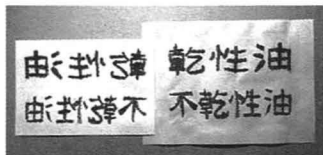 乾性油
不乾性油
乾性油
不乾性油